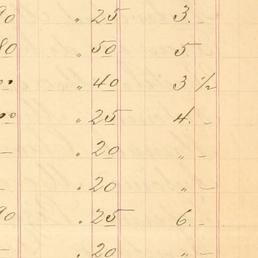 90 " 25 3. –
80 " 50 5
00 " 40 3 ½
00 " 25 4. –
– " 20 " –
– " 20 " –
90 " 25 6. –
– " 20 " –